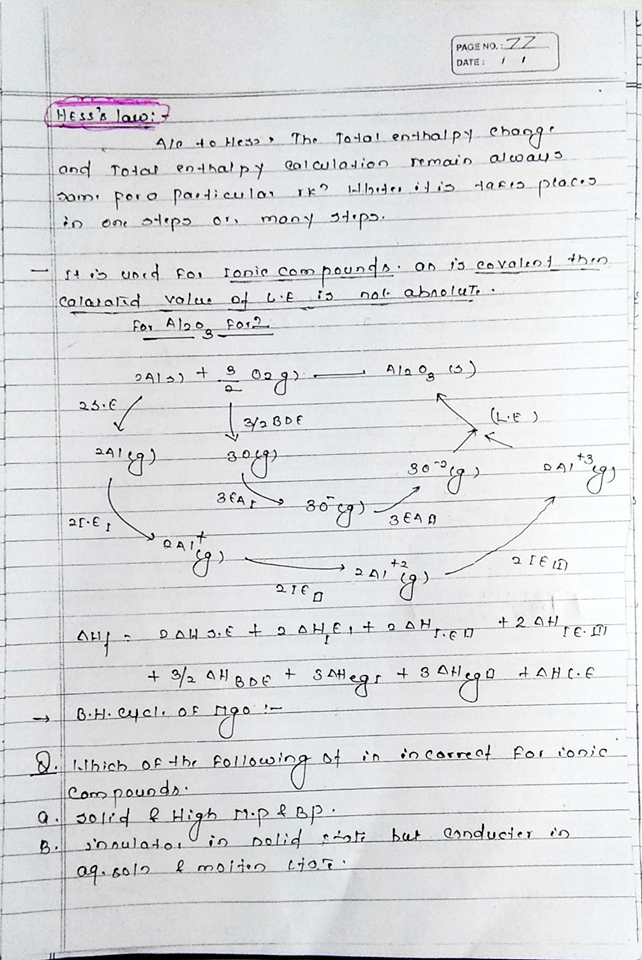 PAGE NO.: 77
DATE: / /
HESS's law:-
A/c to Hess, The Total enthalpy change
and Total enthalpy calculation remain always
same for a particular rxn whether it is takes places
in one steps or, many steps.
- It is used for Ionic compounds. as is covalent then
calculated value of L.E is not absolute.
For Al2O3 For?
2Al(s) + 3/2 O2(g) → Al2O3 (s)
2S.E 3/2 BDE (L.E)
2Al(g) 3O(g) 3O-2(g) 2Al+3(g)
3EAI 3O-(g) 3EAII
2I.EI 2Al+(g) 2IEII 2Al+2(g) 2IEIII
ΔHf = 2ΔH S.E + 2ΔHI.EI + 2ΔHI.EII + 2ΔHIE.III
+ 3/2 ΔHBDE + 3ΔHegI + 3ΔHegII + ΔHL.E
→ B.H. cycl. of Mgo :-
Q. Which of the following st in incorrect for ionic
compounds.
a. solid & High M.p & Bp.
B. insulator in solid state but conducter in
aq. soln & molten state.